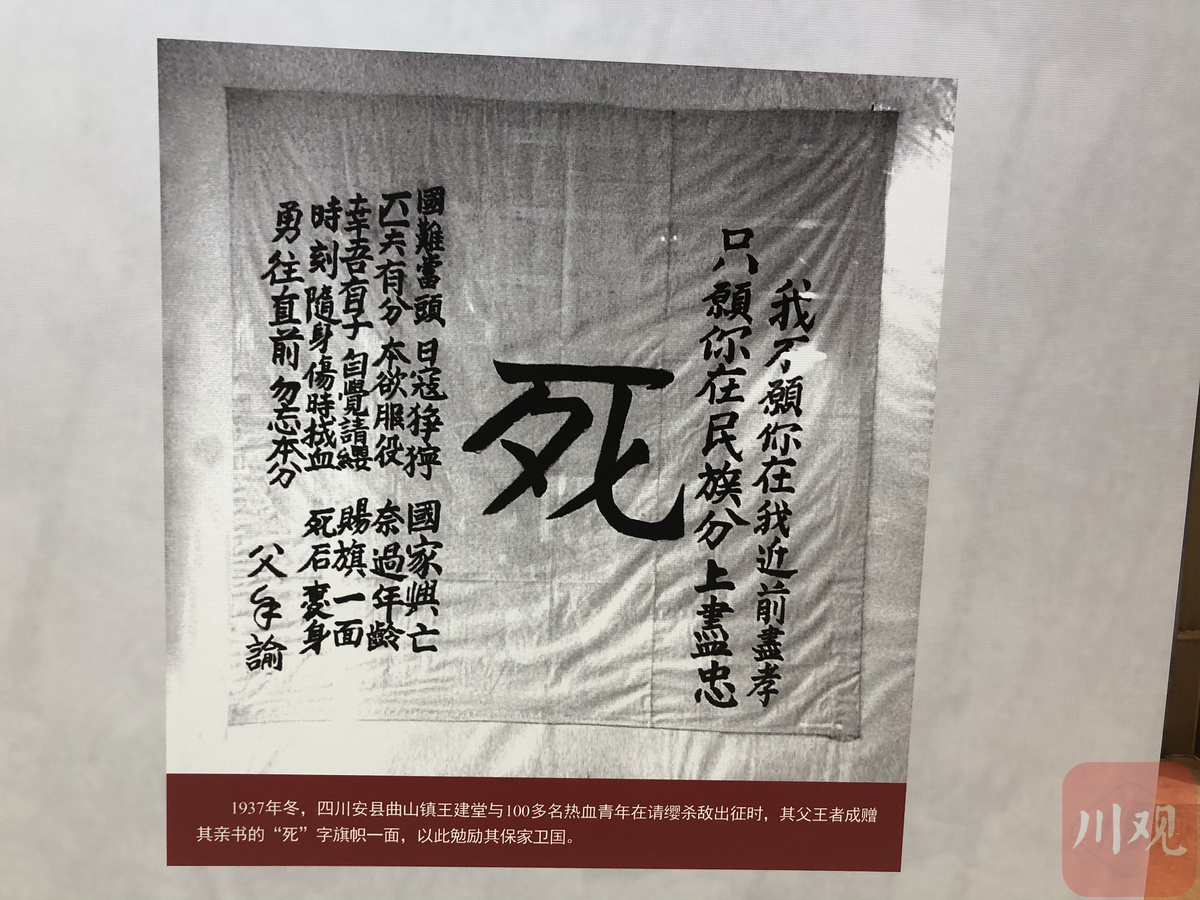 我不願你在我近前盡孝
只願你在民族分上盡忠
死
國難當頭 日寇猙獰 國家興亡
匹夫有分 本欲服役 奈過年齡
幸吾有子 自覺請纓 賜旗一面
時刻隨身 傷時拭血 死后裹身
勇往直前 勿忘本分
父手諭
1937年冬，四川安县曲山镇王建堂与100多名热血青年在请缨杀敌出征时，其父王者成赠
其亲书的“死”字旗帜一面，以此勉励其保家卫国。
川观